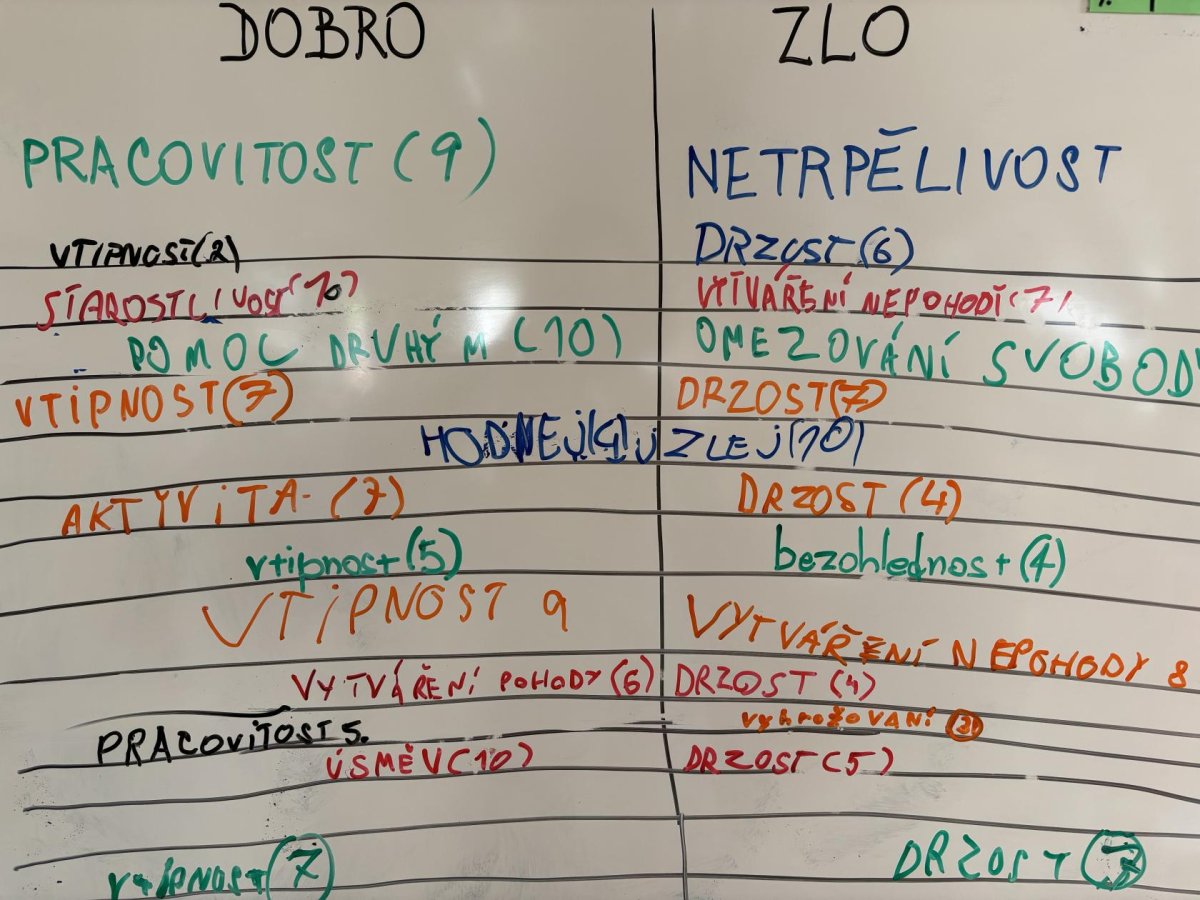 DOBRO ZLO
PRACOVITOST (9) NETRPĚLIVOST
VTIPNOST (2) DRZOST (6)
STAROSTLIVOST (10) VYTVÁŘENÍ NEPOHODÍ (7)
POMOC DRUHÝM (10) OMEZOVÁNÍ SVOBODY
VTIPNOST (7) DRZOST (7)
HODNEJ ZLEJ (10)
AKTYVITA (7) DRZOST (4)
vtipnost (5) bezohlednost (4)
VTIPNOST 9 VYTVÁŘENÍ NEPOHODY 8
VYTVÁŘENÍ POHODY (6) DRZOST (4)
PRACOVITOST 5. vyhrožování (3)
ÚSMĚV (10) DRZOST (5)
vtipnost (7) DRZOST (7)